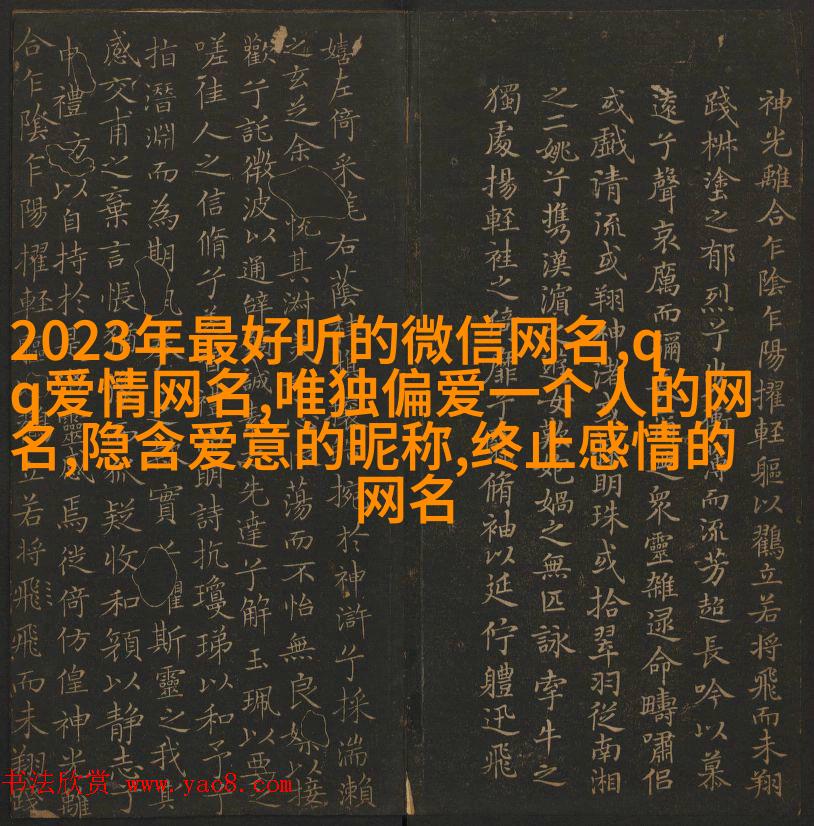 2023年最好听的微信网名,q
q爱情网名,唯独偏爱一个人的网
名,隐含爱意的昵称,终止感情的
网名
神光離合乍陰乍陽擢輕軀以鸖立若將飛而未翔
踐椒塗之郁烈兮步薄而流芳超長吟以慕
遠兮聲哀厲而彌衆靈雜遝命疇嘯侶
或戲清流或翔神渚明珠或拾翠羽從南湘
之二姚兮携漢濵女媧之無匹詠牽牛之
獨處揚輕袿之兮脩袖以延佇軆迅飛
嬉左倚采旄右蔭於神滸兮採湍瀨
之玄芝余悅其淑蕩而不怡無良以接
歡兮託微波以通辭誠先達兮解玉珮以要之
嗟佳人之信脩兮明詩抗瓊珶以和予兮
指潛淵而為期實懼斯靈之我其
感交甫之棄言悵疑收和顏以静志兮
申禮方以自持於靈感焉徙倚仿偟神光離
合乍陰乍陽擢輕立若將飛飛而未翔踐
书法欣赏 www.yac8.com